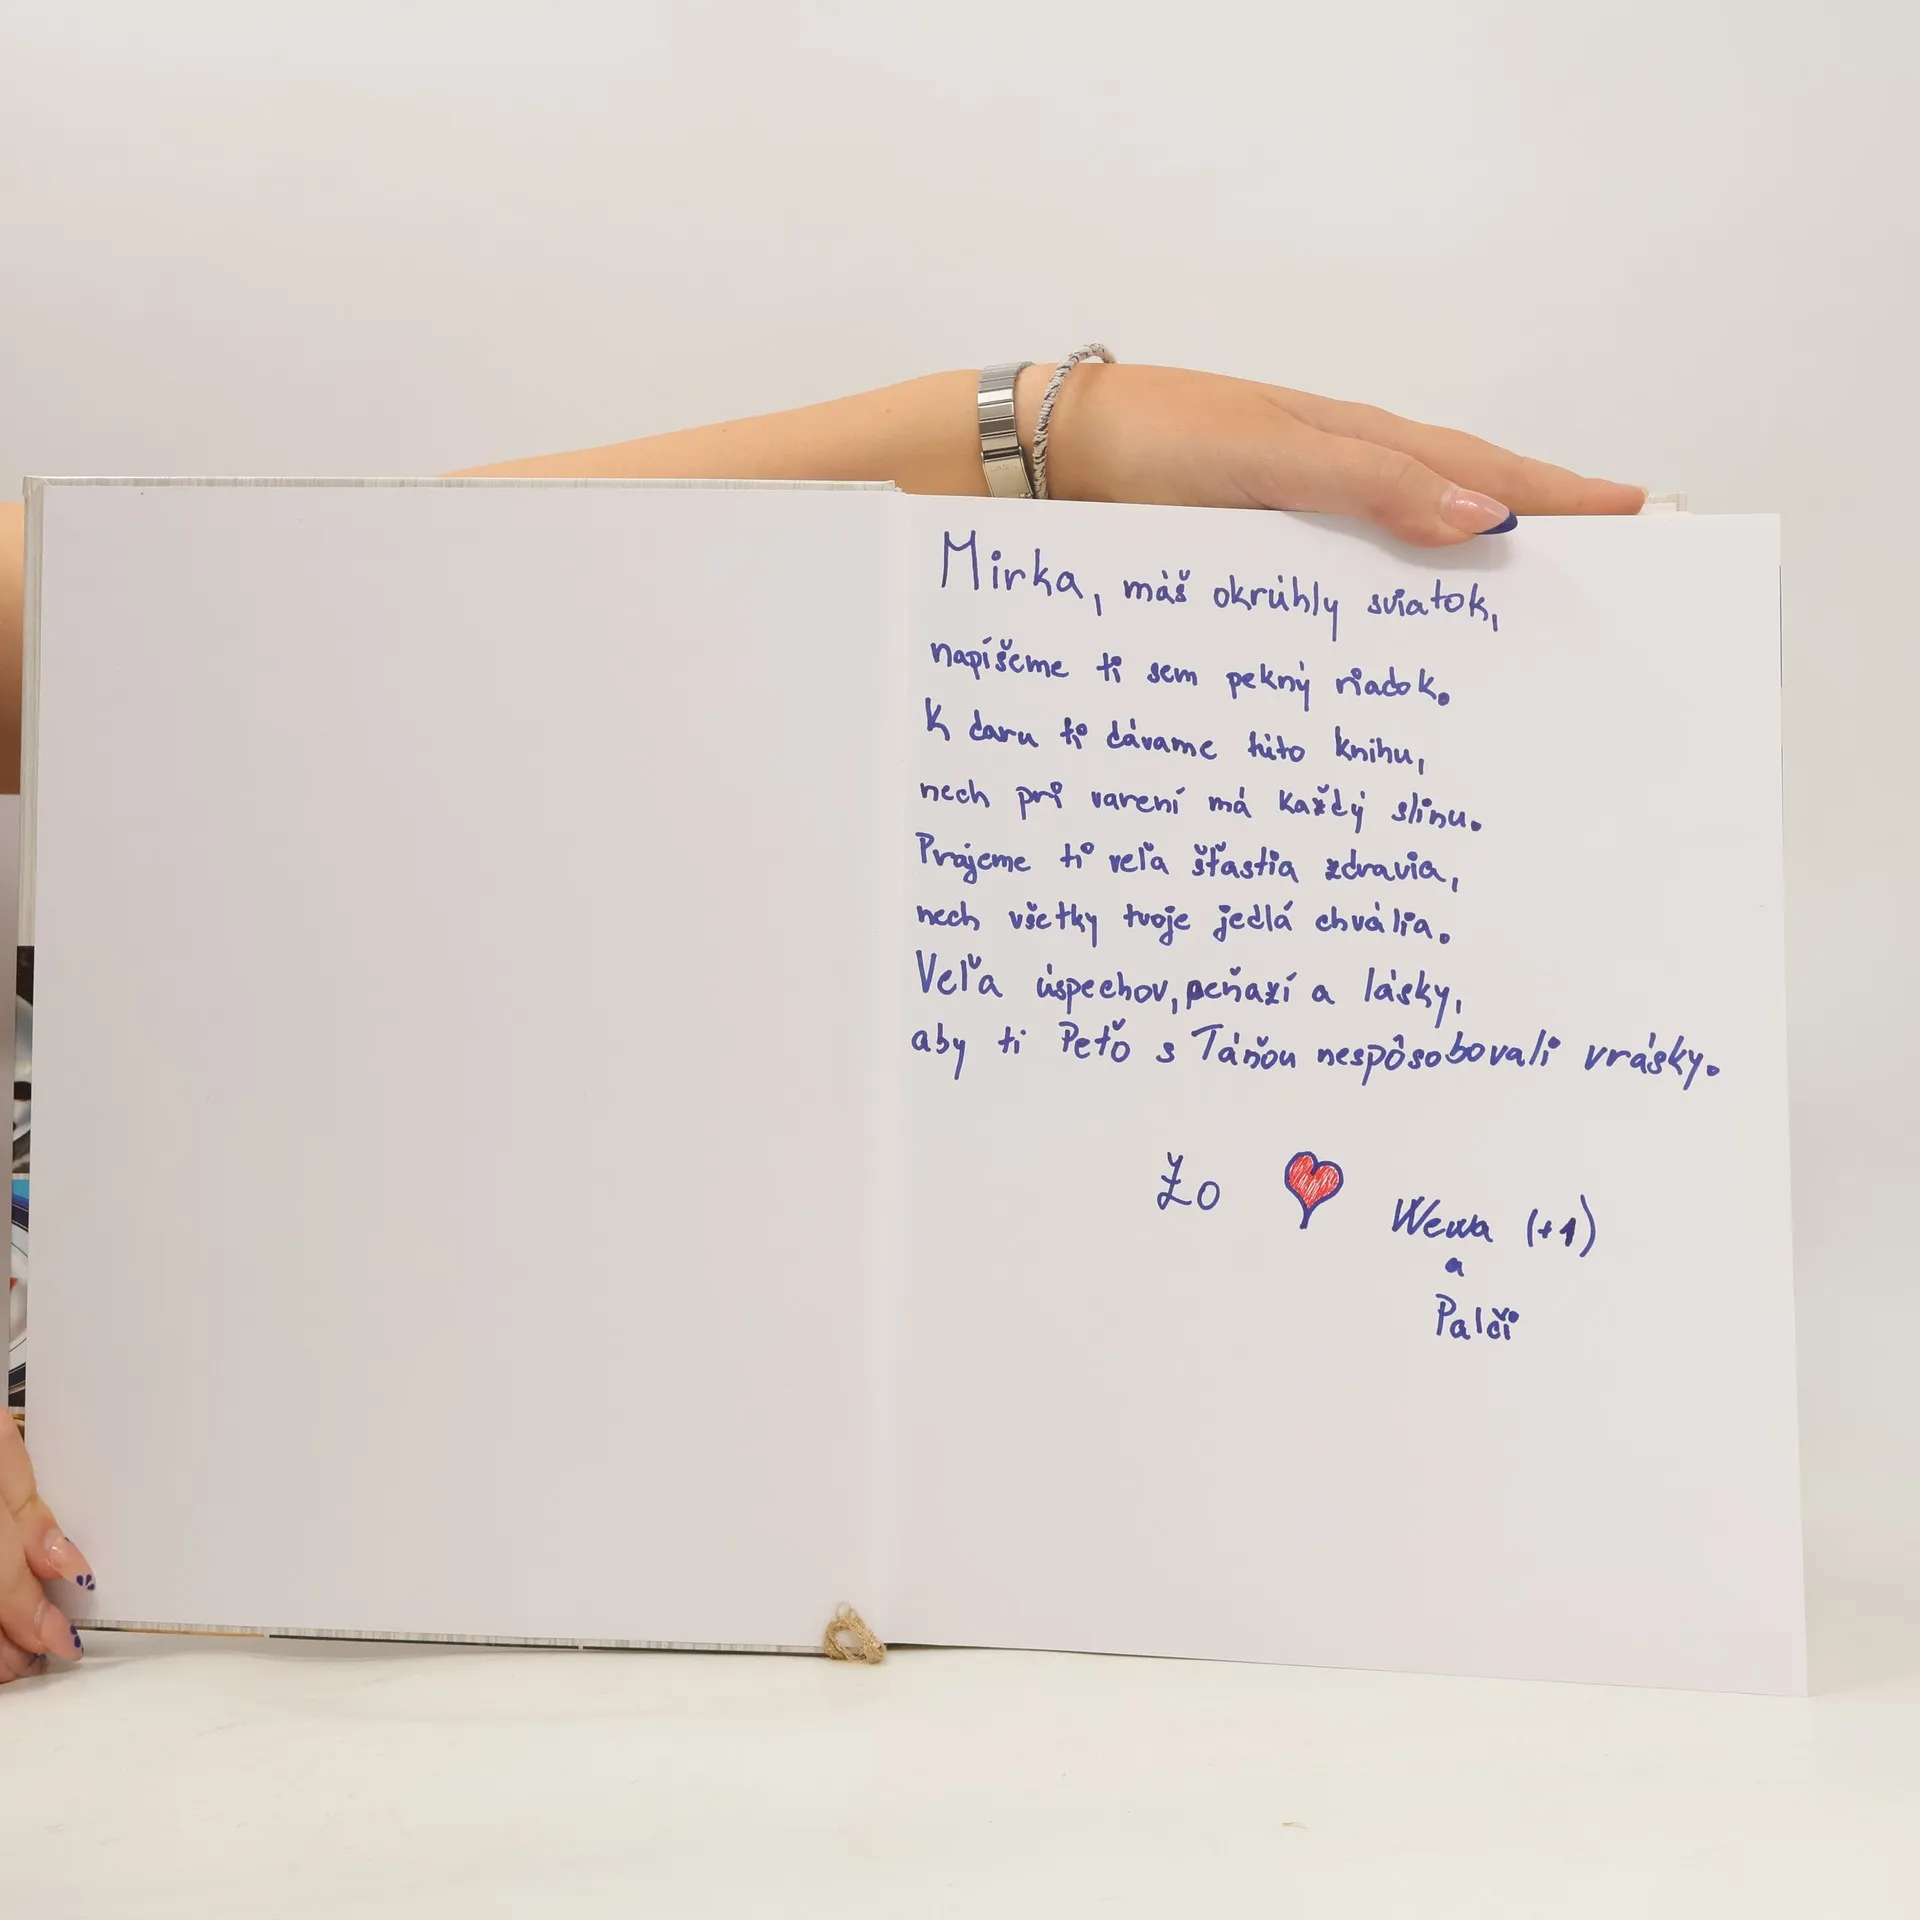 Mirka, máš okrúhly sviatok,
napíšeme ti sem pekný riadok.
K daru ti dávame túto knihu,
nech pri varení má každý slinu.
Prajeme ti veľa šťastia zdravia,
nech všetky tvoje jedlá chvália.
Veľa úspechov, peňazí a lásky,
aby ti Peťo s Táňou nespôsobovali vrásky.
Žo
Wewa (+1)
a
Palči